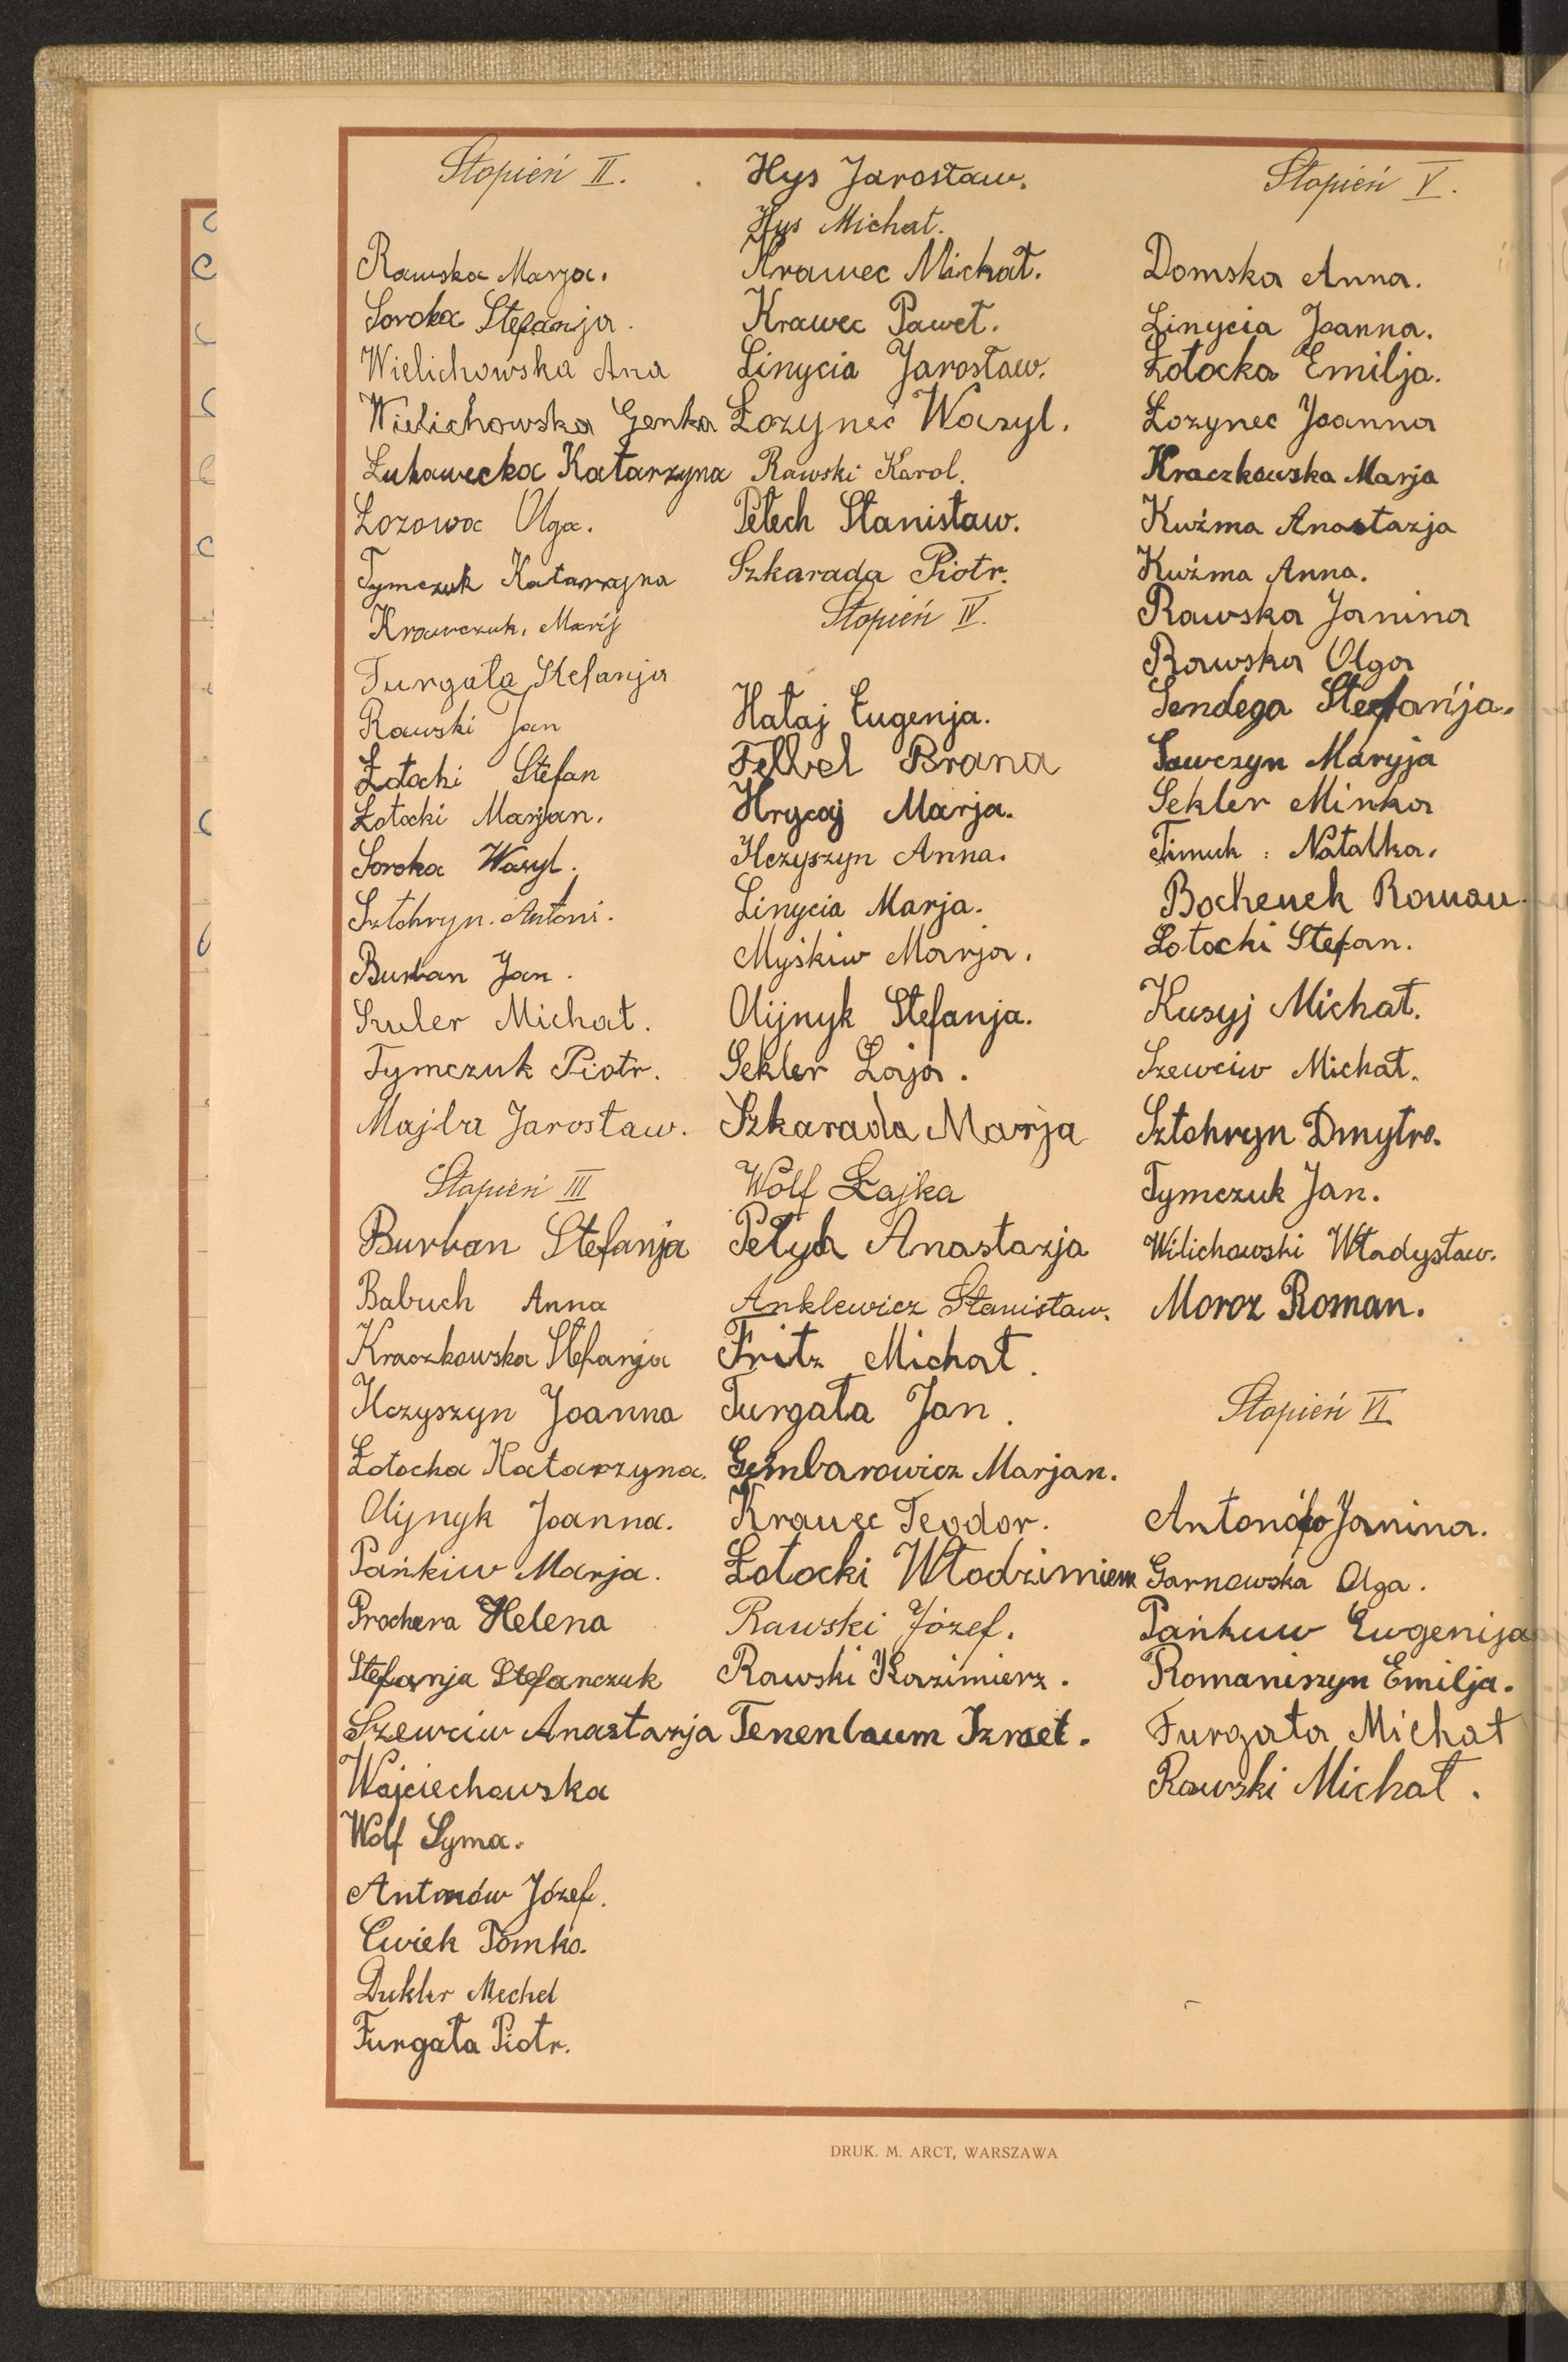 Stopień II.
Rawska Marja.
Soroka Stefanja.
Wielichowska Ana
Wielichowska Genka
Łukawecka Katarzyna
Łozowa Olga.
Tymczuk Katarzyna
Krawczuk, Marij
Furgała Stefanja
Rawski Jan
Łotocki Stefan
Łotocki Marjan.
Soroka Wasyl.
Sztohryn. Antoni.
Burban Jan.
Szuler Michał.
Tymczuk Piotr.
Majba Jarosław.
Stopień III
Burban Stefanja
Babuch Anna
Kraczkowska Stefanja
Ilczyszyn Joanna
Łotocka Katarzyna.
Olijnyk Joanna.
Pańkiw Marja.
Prochera Helena
Stefanja Stefanczuk
Szewciw Anastazja
Wojciechowska
Wolf Syma.
Antonów Józef.
Cwiek Tomko.
Dukler Mechel
Furgała Piotr.
Hys Jarosław.
Hys Michał.
Krawec Michał.
Krawec Paweł.
Linycia Jarosław.
Łozyneć Wasyl.
Rawski Karol.
Petech Stanisław.
Szkarada Piotr.
Stopień IV.
Hałaj Eugenja.
Felbel Brana
Hrycaj Marja.
Ilczyszyn Anna.
Linycia Marja.
Myśkiw Marja.
Olijnyk Stefanja.
Sekler Łaja.
Szkarada Marja
Wolf Łajka
Petych Anastazja
Anklewicz Stanisław.
Fritz Michał.
Furgała Jan.
Gembarowicz Marjan.
Krawec Teodor.
Łotocki Włodzimierz
Rawski Józef.
Rawski Kazimierz.
Tenenbaum Izrael.
Stopień V.
Domska Anna.
Linycia Joanna.
Łotocka Emilja.
Łozynec Joanna
Kraczkowska Marja
Kuźma Anastazja
Kuźma Anna.
Rawska Janina
Rawska Olga
Sendega Stefanja.
Sawczyn Maryja
Sekler Minka
Timuk. Natalka.
Bochenek Roman.
Łotocki Stefan.
Kusyj Michał.
Szewciw Michał.
Sztohryn Dmytro.
Tymczuk Jan.
Wilichowski Władysław.
Moroz Roman.
Stopień VI
Janina.
Garnowska Olga.
Pańkuw Ewgenija
Romaniszyn Emilja.
Furgała Michał
Rawski Michał.
DRUK. M. ARCT, WARSZAWA